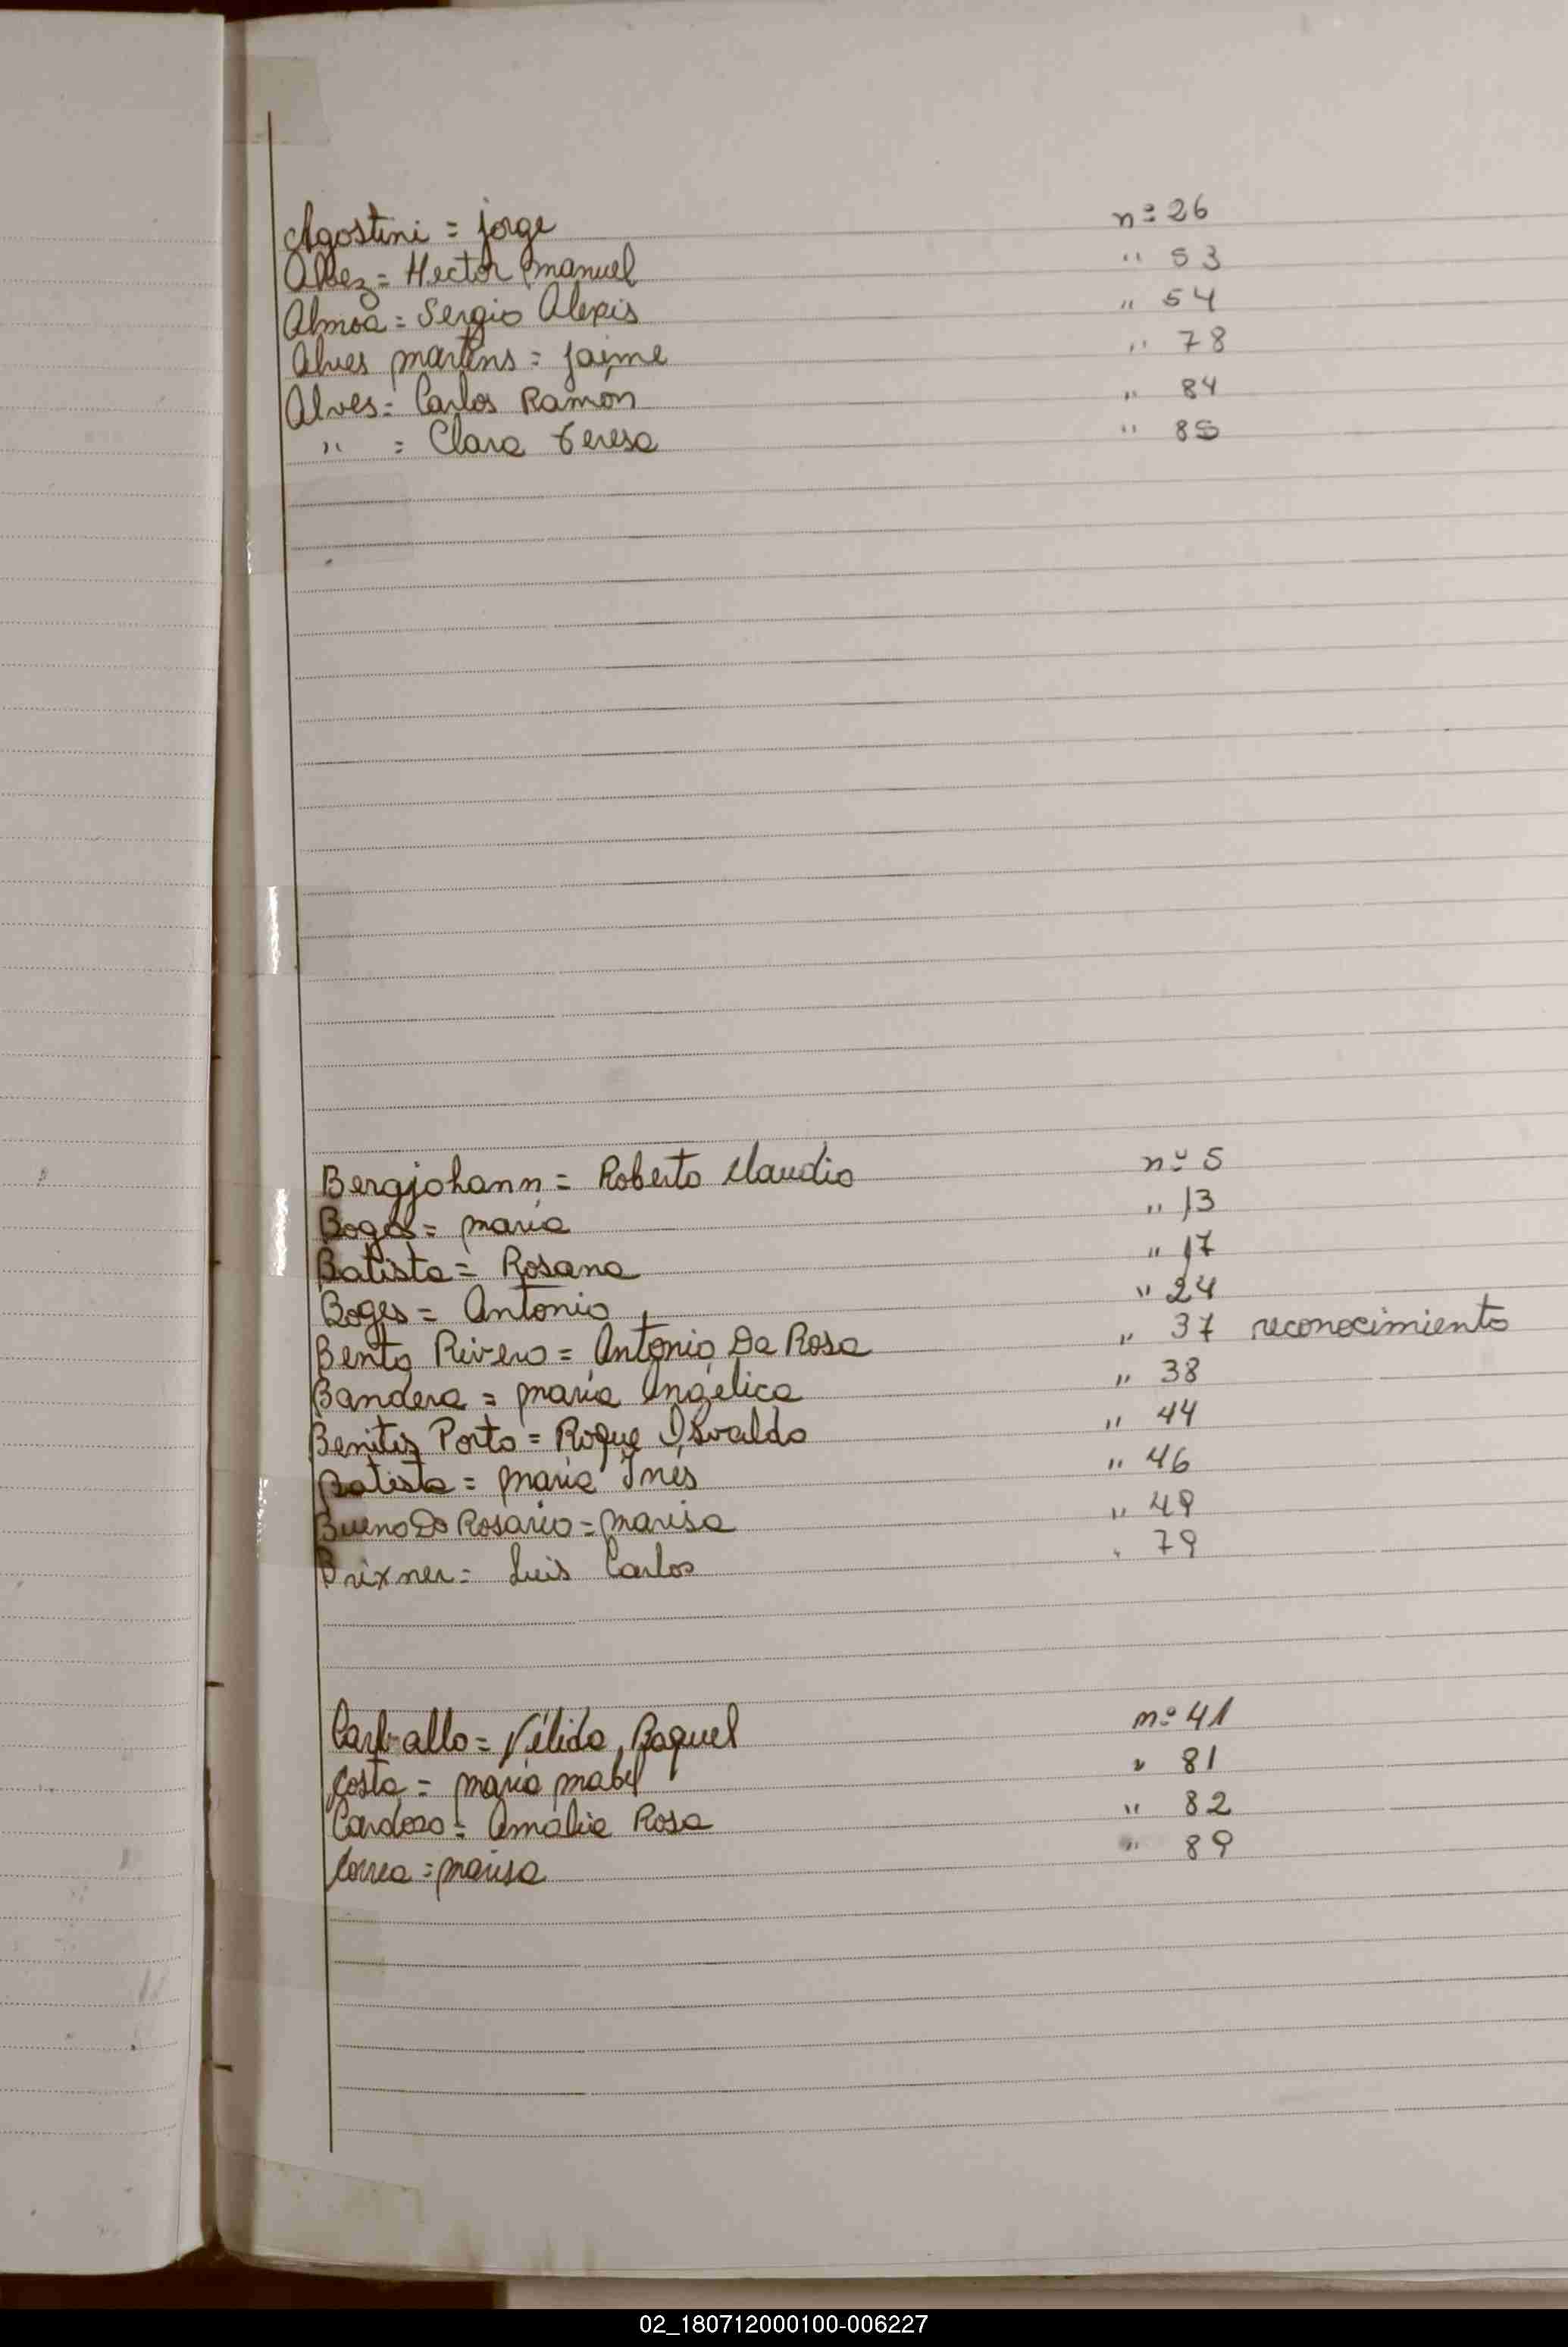 Agostini = Jorge nº 26
Alvez = Hector Manuel " 53
Almoa = Sergio Alexis " 54
Alves Martins = Jaime " 78
Alves = Carlos Ramón " 84
" = Clara Teresa " 85
Bergjohann = Roberto Claudio nº 5
Boges = María " 13
Batista = Rosana " 17
Boges = Antonio " 24
Bento Rivero = Antonio Da Rosa " 37 reconocimiento
Bandera = María Angélica " 38
Benitis Porto = Roque Osvaldo " 44
Batista = María Inés " 46
Bueno Do Rosario = Marisa " 49
Brixner = Luis Carlos " 79
Carballo = Nélida Raquel nº 41
Costa = María Mabel " 81
Cardozo = Amalia Rosa " 82
Correa = Marisa " 89
02_180712000100-006227